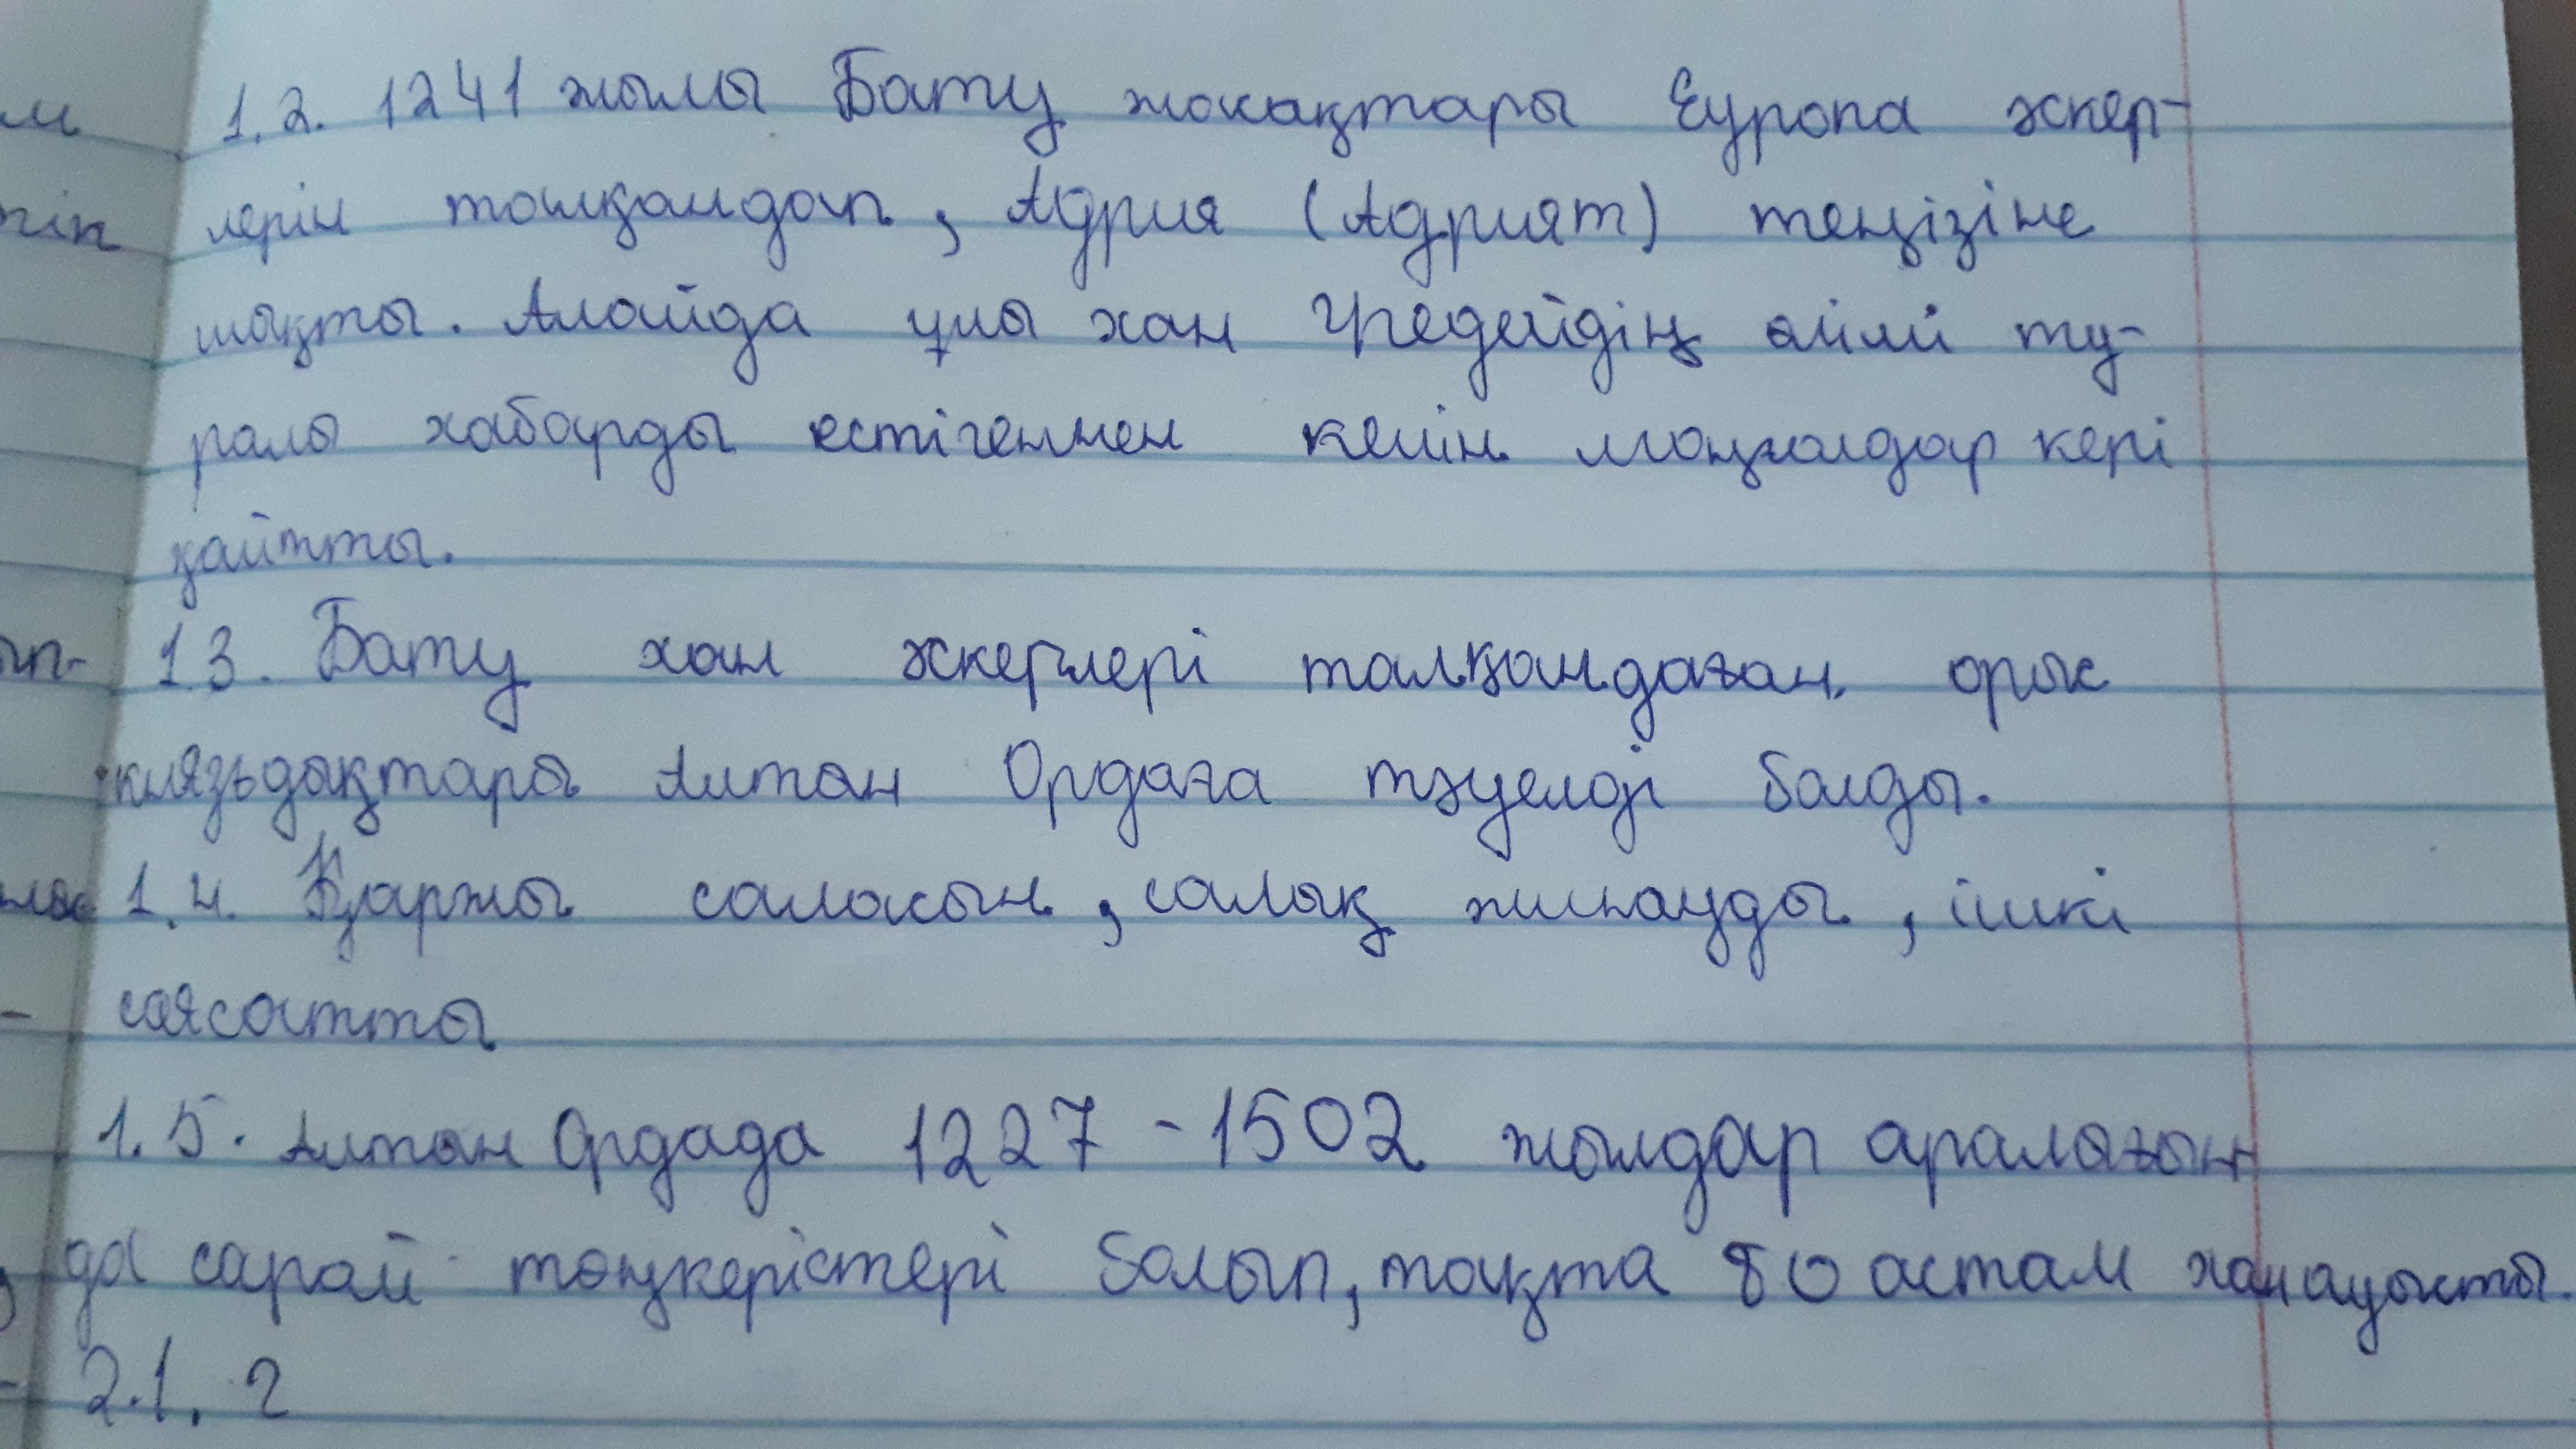 1.2. 1241 жылы Бату жасақтары Еуропа әскер-
лерін талқандап, Адрия (Адрият) теңізіне
шықты. Алайда ұлы хан Үгедейдің өлімі ту-
ралы хабарды естігеннен кейін моңғолдар кері
қайтты.
1.3. Бату хан әскерлері талқандаған орыс
князьдықтары Алтын Ордаға тәуелді болды.
1.4. Қаржы саласын, салық жинауды, ішкі
саясатты
1.5. Алтын Ордада 1227-1502 жылдар аралығын
да сарай төңкерістері болып, тақта 80 астам хан ауысты.
2.1. 2